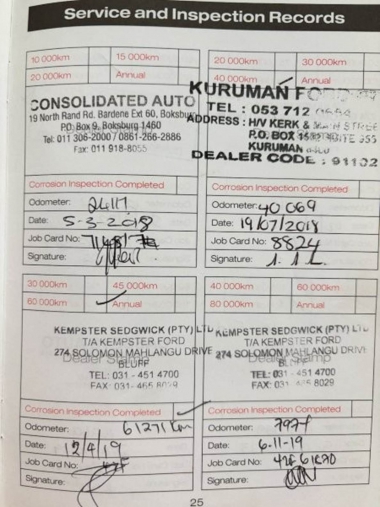 Service and Inspection Records
10 000km 15 000km
20 000km Annual
CONSOLIDATED AUTO
19 North Rand Rd. Bardene Ext 60, Boksburg
P.O. Box 9, Boksburg 1460
Tel: 011 306-2000 / 0861-266-2886
Fax: 011 918-8055
Corrosion Inspection Completed
Odometer: 24117
Date: 5-3-2018
Job Card No:
Signature:
20 000km 30 000km
40 000km Annual
KURUMAN FORD
TEL : 053 712
ADDRESS : H/V KERK & STREET
P.O. BOX
KURUMAN
DEALER CODE : 91132
Corrosion Inspection Completed
Odometer: 40 069
Date: 19/07/2018
Job Card No: 8824
Signature:
30 000km 45 000km
60 000km Annual
KEMPSTER SEDGWICK (PTY) LTD
T/A KEMPSTER FORD
274 SOLOMON MAHLANGU DRIVE
Dealer Stamp
BLUFF
TEL: 031 - 451 4700
FAX: 031- 465 8029
Corrosion Inspection Completed
Odometer: 61271 Km
Date: 12/4/19
Job Card No:
Signature:
40 000km 60 000km
80 000km Annual
KEMPSTER SEDGWICK (PTY) LTD
T/A KEMPSTER FORD
274 SOLOMON MAHLANGU DRIVE
Dealer Stamp
BLUFF
TEL: 031 - 451 4700
FAX: 031- 465 8029
Corrosion Inspection Completed
Odometer:
Date: 6-11-19
Job Card No:
Signature:
25